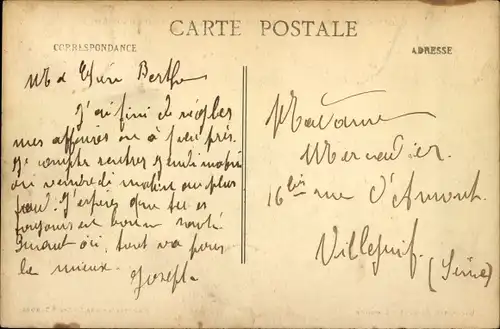 CARTE POSTALE
CORRESPONDANCE
ADRESSE
Ma Chère Berthe
J'ai fini de régler
mes affaires ou à peu près.
Je compte rentrer jeudi matin
ou vendredi matin au plus
tard. J'espère que tu es
toujours en bonne santé
Quant à , tout va pour
le mieux.
Joseph
Madame
Mercadier.
16 bis rue d'Amont.
Villejuif.
(Seine)